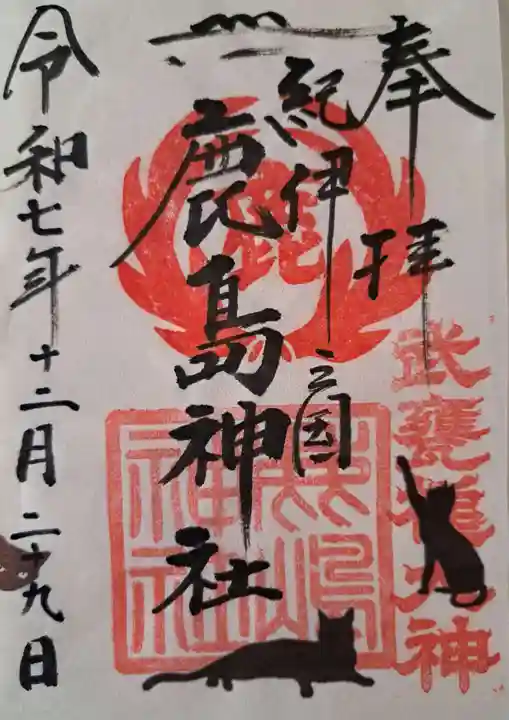 奉拝
武甕槌大神
紀伊之国
鹿島神社
鹿
鹿嶋神社
令和七年十二月二十九日